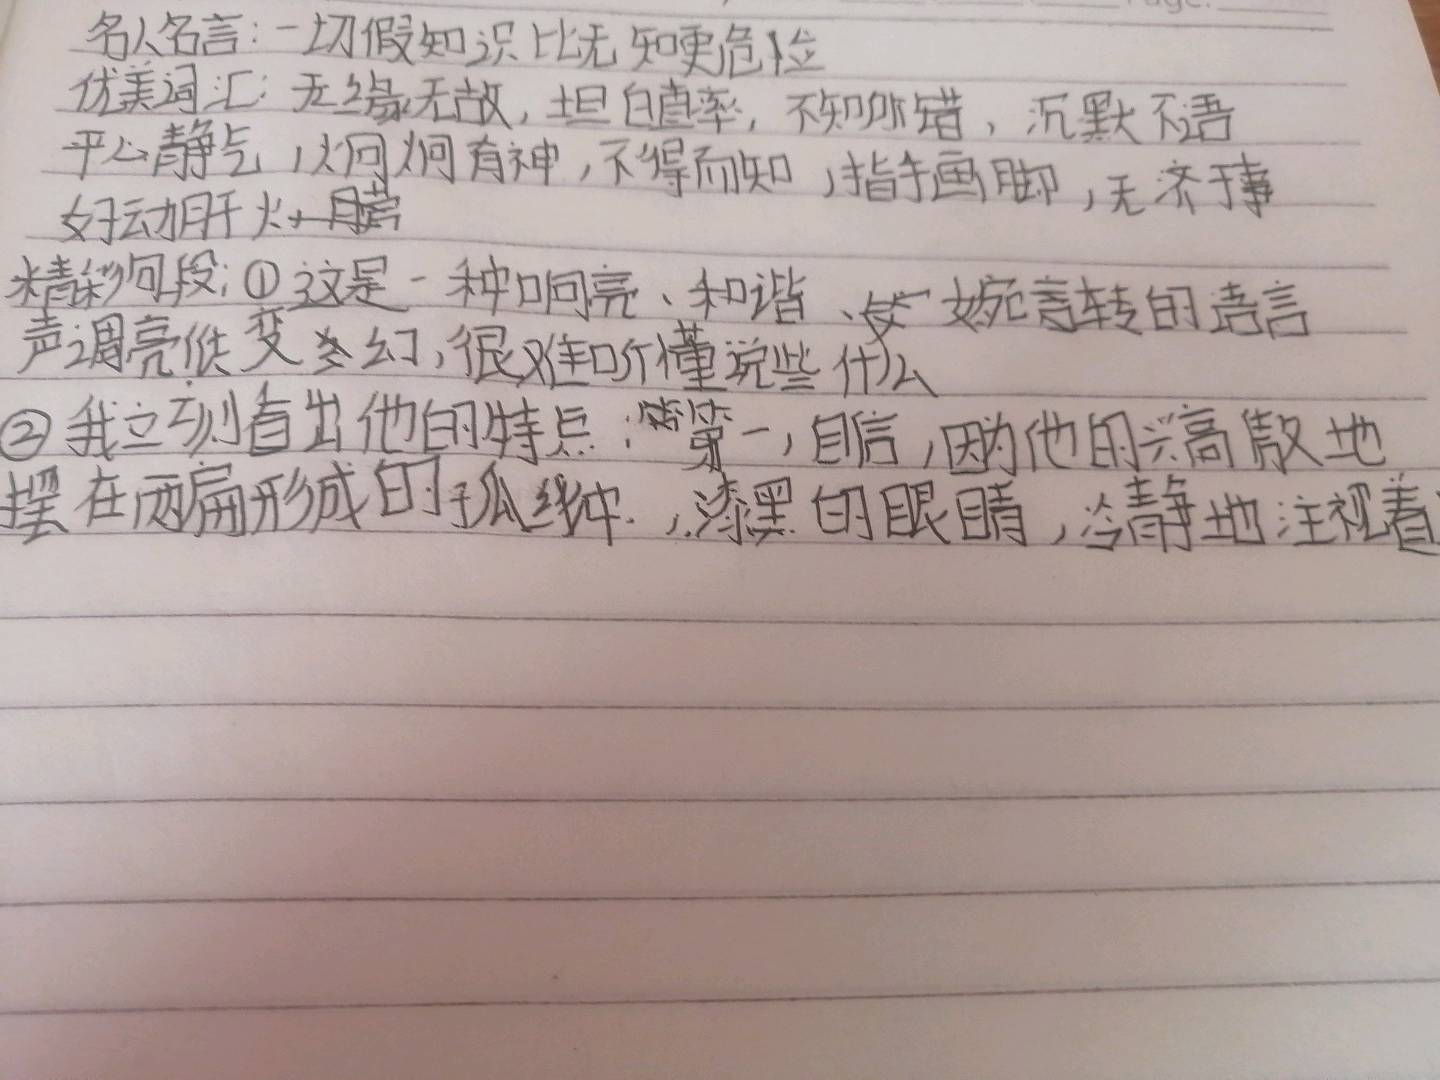 名人名言:一切假知识比无知更危险
优美词汇:无缘无故,坦白直率,不知所错,沉默不语
平心静气,炯炯有神,不得而知,指手画脚,无济于事
好动肝火
精彩句段:①这是一种响亮、和谐、婉言转的语言
声调亮低变幻,很难听懂说些什么
②我立刻看出他的特点:第一,自信,因为他的兴高散地
摆在两扁形成的孤线中.,漆黑的眼睛,冷静地注视着